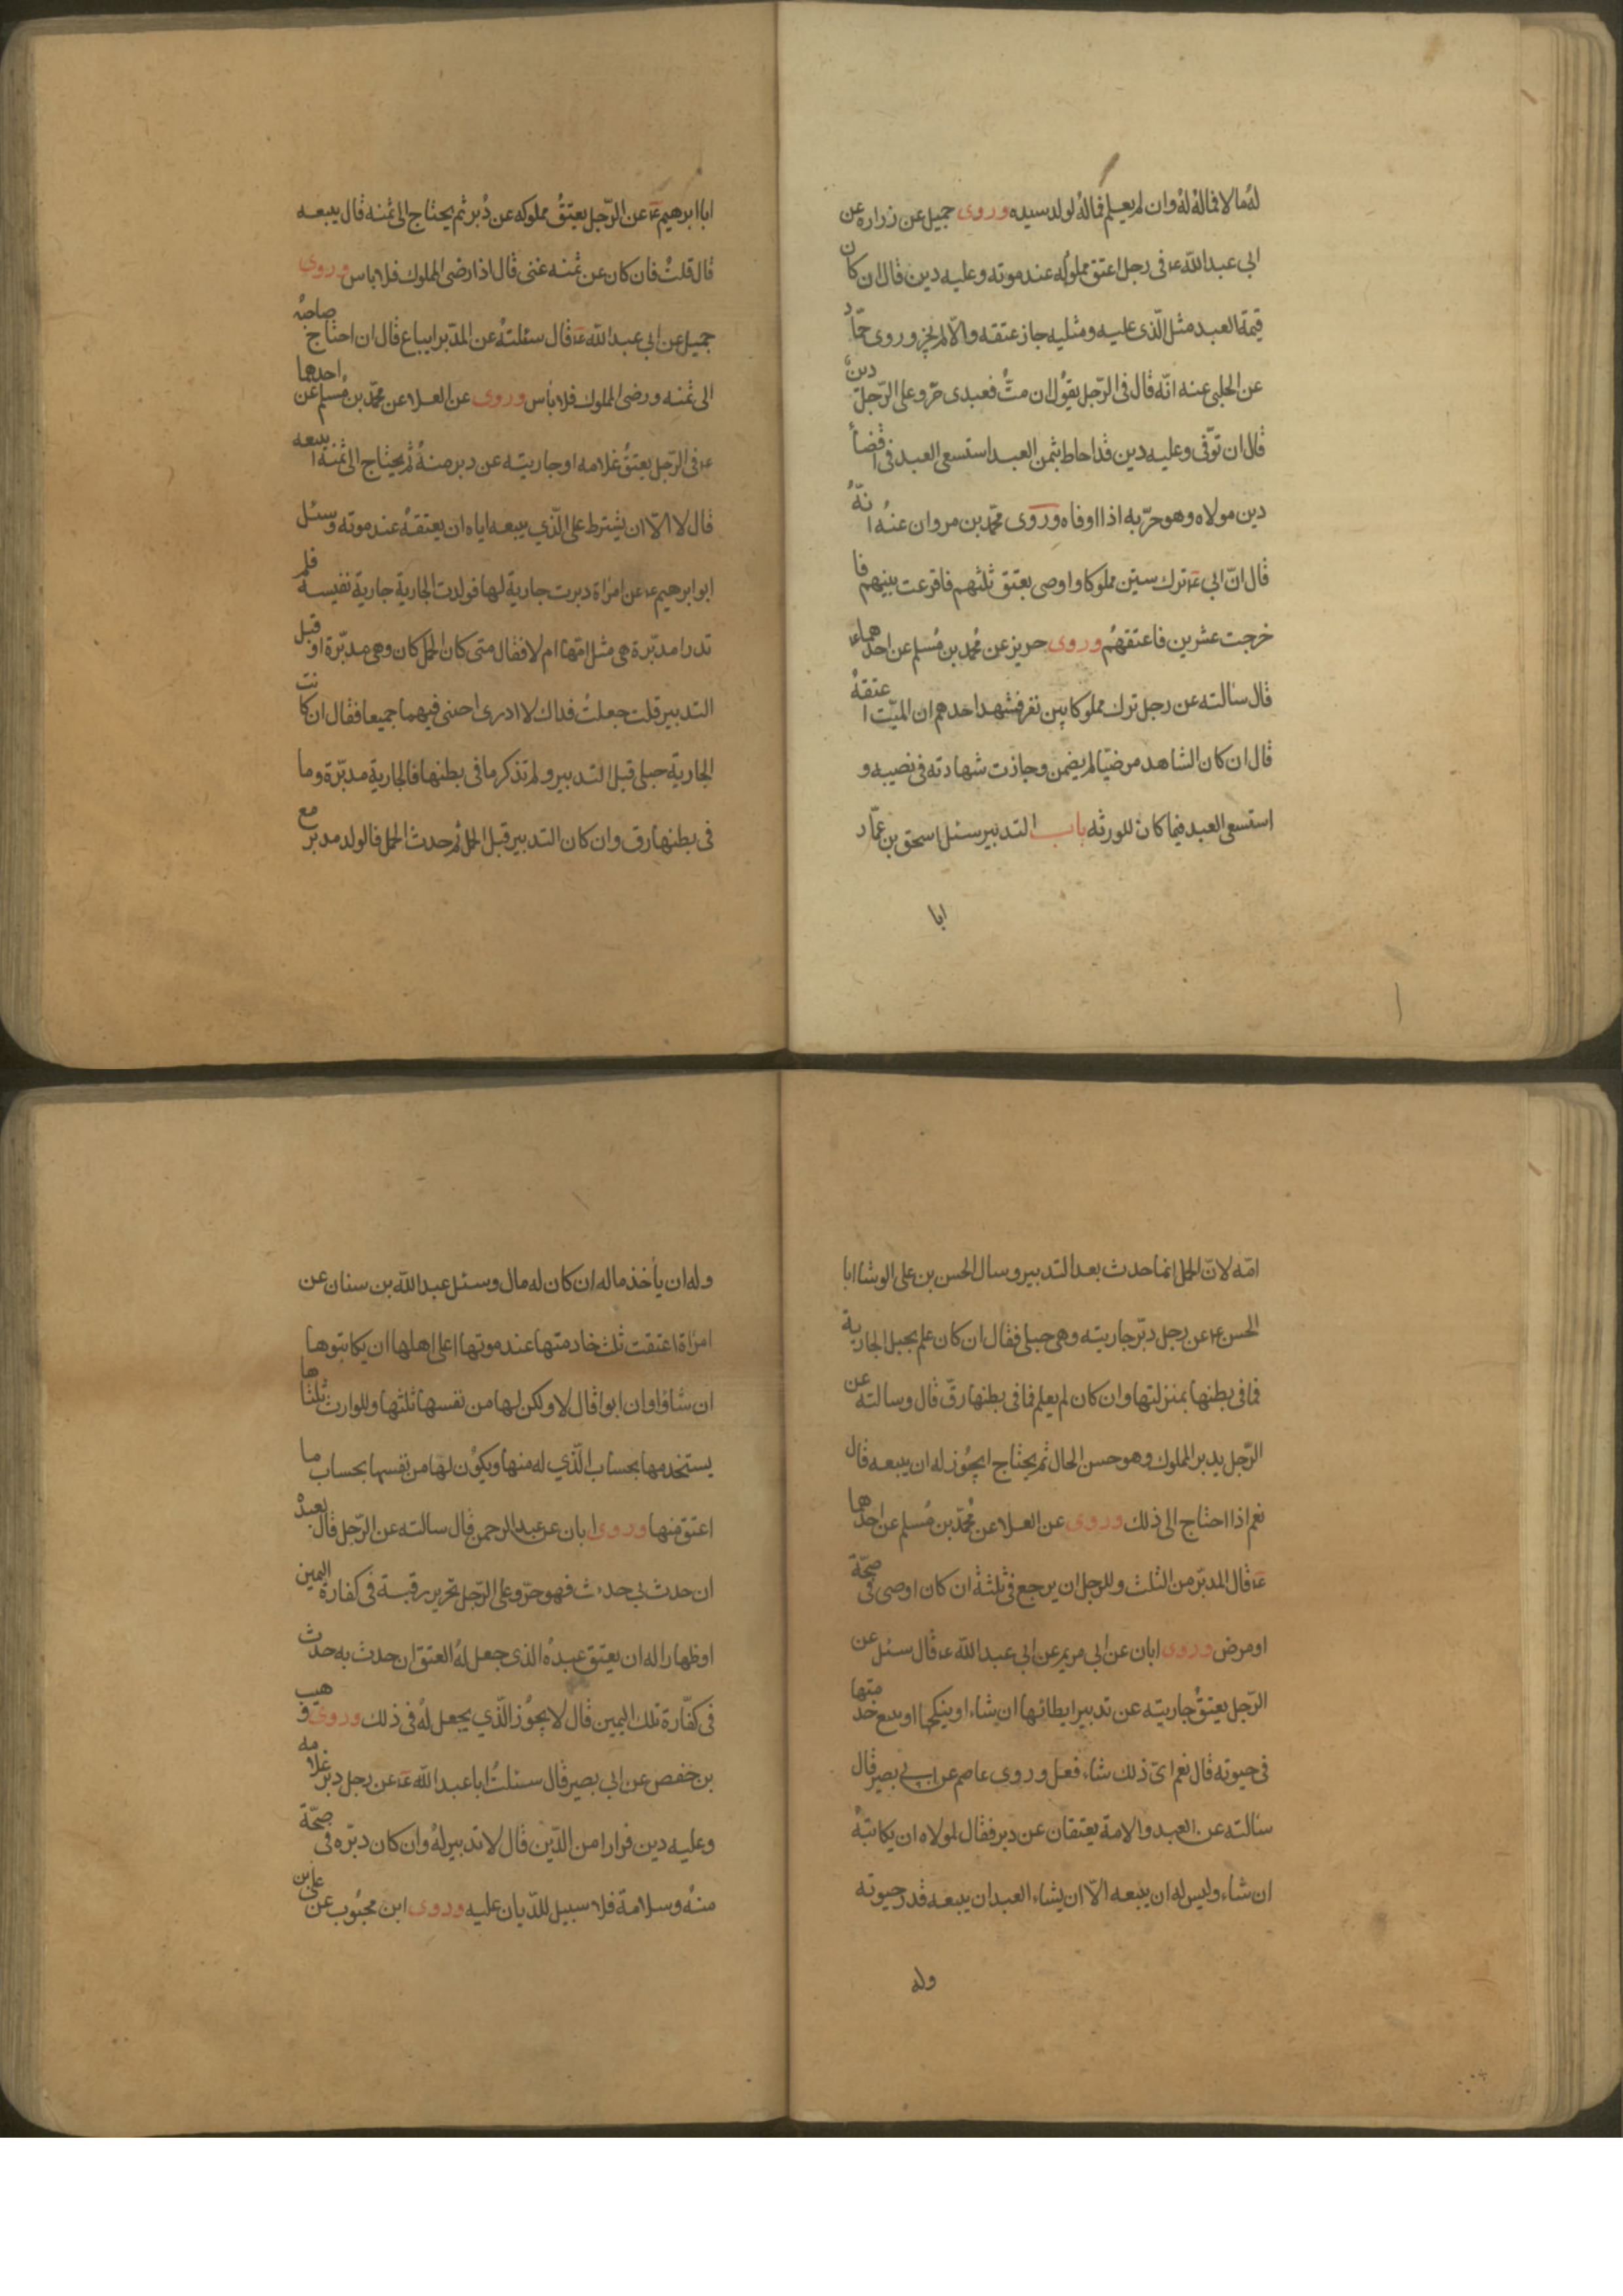 له مالا فماله له وان لم يعلم فماله لولد سيده وروى جميل عن زرارة عن
ابي عبدالله ع في رجل اعتق مملوكه عند موته وعليه دين قال ان كان
قيمة العبد مثل الّذى عليه ومثليه جاز عتقه والّا لم يجز وروى حمّاد
عن الحلبى عنه انّه قال فى الرّجل يقول ان متُّ فعبدى حرّ وعلى الرّجل دين
قال ان توّفى وعليه دين قد احاط بثمن العبد استسعى العبد فى قضأ
دين مولاه وهو حرّ به اذا اوفاه وروى محمّد بن مروان عنهُ انّهُ
قال انّ ابي ع ترك ستين مملوكا واوصى بعتق ثلثهم فاقرعت بينهم فا
خرجت عشرين فاعتقهُم وروى حريز عن محُمد بن مُسلم عن احدهماع
قال سالته عن رجل ترك مملوكا بين نفر فشهد احدهم ان الميّت اعتقهُ
قال ان كان الشاهد مرضيّا لم يضمن وجازت شهادته فى نصيبه و
استسعى العبد فيما كان للورثه باب التدبير سئل اسحق بن عمّار
ابا
ابا ابرهيم ع عن الرّجل يعتقُ مملوكه عن دُبر ثم يحتاج الى ثمنه قال يبيعه
قال قلتُ فان كان عن ثمنه غنى قال اذا رضى المملوك فلا باس وروى
جميل عن ابى عبدالله ع قال سئلتهُ عن المدّبر ايباع قال ان احتاج صاحبهُ
الى ثمنه ورضى المملوك فلا بأس وروى عن العلا عن محمّد بن مُسلم عن احدهما
ع فى الرّجل يعتقُ غلامه او جاريته عن دبر منهُ ثم يحتاج الى ثمنه ايبيعه
قال لا الّا ان يشترط على الّذي يبيعه اياه ان يعتقهُ عند موته وسئل
ابو ابرهيم ع عن امراة دبرت جارية لها فولدت الجارية جارية نفيسة فلم
تدر امدبّرة هى مثل امّها ام لا فقال متى كان الحمل كان وهى مدبّرة او قبل
التدبير قلت جعلت فداك لا ادرى اجبنى فيهما جميعا فقال ان كانت
الجارية حبلى قبل التدبير ولم تذكر ما فى بطنها فالجارية مدبّرة وما
فى بطنها رق وان كان التدبير قبل الحمل ثم حدث الحمل فالولد مدبر مع
امّه لانّ الحمل انما حدث بعد التدبير وسال الحسن بن على الوشا ابا
الحسن ع عن رجل دبّر جاريته وهى حبلى فقال ان كان علم بحبل الجارية
فما فى بطنها بمنزلتها وان كان لم يعلم فما فى بطنها رقّ قال وسالته عن
الرّجل يدبر المملوك وهو حسن الحال ثم يحتاج ايجُوز له ان يبيعه قال
نعم اذا احتاج الى ذلك وروى عن العلا عن محُمّد بن مُسلم عن احدهما
ع قال المدبّر من الثلث وللرجل ان يرجع فى ثلثة ان كان اوصى فى صحّة
او مرض وروى ابان عن ابي مريم عن ابي عبدالله ع قال سئل عن
الرّجل يعتقُ جاريته عن تدبير ايطائها ان شاء او ينكحها او يبيع خدمتها
فى حيوته قال نعم اىّ ذلك شاء فعل وروى عاصم عن ابي بصير قال
سالته عن العبد والامة يعتقان عن دبر فقال لمولاه ان يكاتبهُ
ان شاء وليس له ان يبيعه الّا ان يشاء العبد ان يبيعه قدر حيوته
وله
وله ان يأخذ ماله ان كان له مال وسئل عبدالله بن سنان عن
امراة اعتقت ثلث خادمتها عند موتها اعلى اهلها ان يكاتبوها
ان شاؤا وان ابوا قال لا ولكن لها من نفسها ثلثها وللوارث ثلثاها
يستخدمها بحساب الّذي له منها ويكوُن لها من نفسها بحساب ما
اعتق منها وروى ابان عن عبد الرحمن قال سالته عن الرّجل قال لعبدْ
ان حدث بى حدث فهو حرّ وعلى الرّجل تحرير رقبة فى كفارة اليمين
او ظهار اله ان يعتق عبدهُ الذى جعل لهُ العتق ان حدث به حدث
فى كفّارة تلك اليمين قال لا يجوُز الّذي يجعل لهُ فى ذلك وروى وهيب
بن حفص عن ابى بصير قال سئلتُ ابا عبدالله ع عن رجل دبر غلامه
وعليه دين فرارا من الدّين قال لا تدبير لهُ وان كان دبّره فى صحّة
منهُ وسلامة فلا سبيل للدّيان عليه وروى ابن محبُوب عن على بن